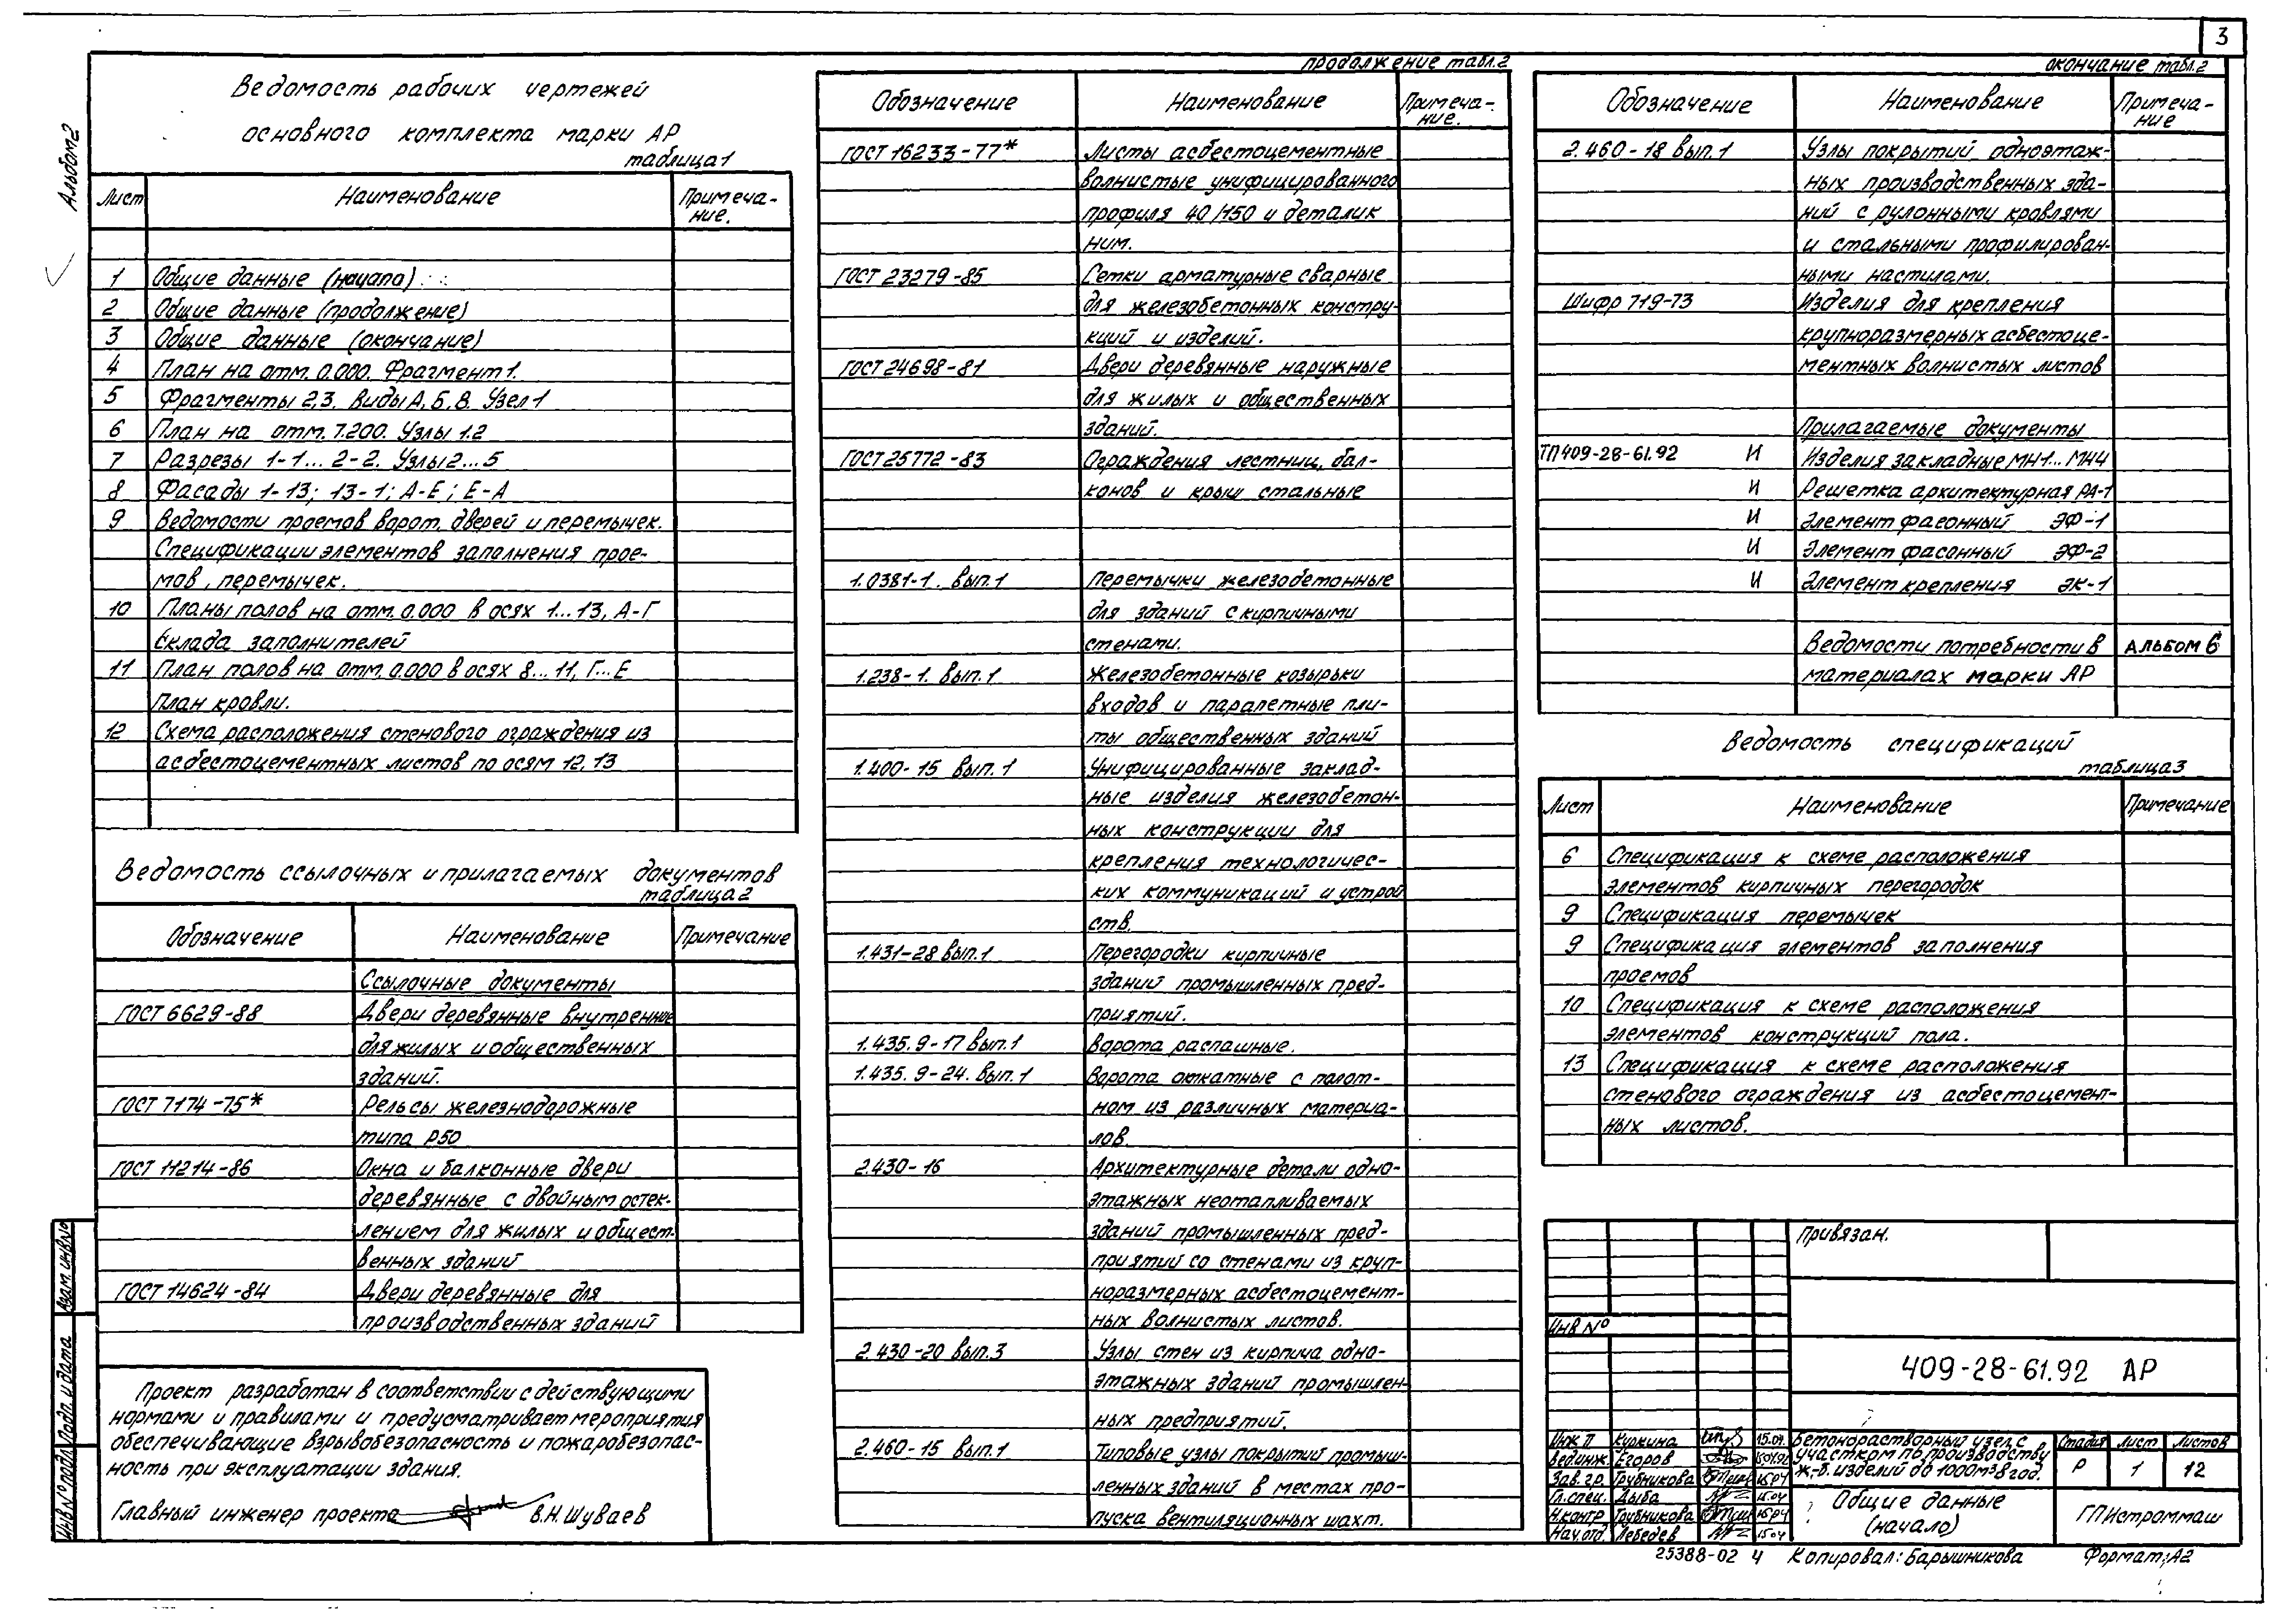 3
Альбом 2
Ведомость рабочих чертежей
основного комплекта марки АР
таблица 1
Лист Наименование Примеча-
ние.
1 Общие данные (начало)
2 Общие данные (продолжение)
3 Общие данные (окончание)
4 План на отм. 0.000. Фрагмент 1.
5 Фрагменты 2,3. Виды А, Б, В. Узел 1
6 План на отм. 7.200. Узлы 1.2
7 Разрезы 1-1... 2-2. Узлы 2...5
8 Фасады 1-13; 13-1; А-Е; Е-А
9 Ведомости проемов ворот, дверей и перемычек.
Спецификации элементов заполнения прое-
мов, перемычек.
10 Планы полов на отм. 0.000 в осях 1...13, А-Г
Склада заполнителей
11 План полов на отм. 0.000 в осях 8...11, Г...Е
План кровли.
12 Схема расположения стенового ограждения из
асбестоцементных листов по осям 12,13
Ведомость ссылочных и прилагаемых документов
таблица 2
Обозначение Наименование Примечание
Ссылочные документы
ГОСТ 6629-88 Двери деревянные внутренние
для жилых и общественных
зданий.
ГОСТ 7174-75* Рельсы железнодорожные
типа Р50
ГОСТ 11214-86 Окна и балконные двери
деревянные с двойным остек-
лением для жилых и общест-
венных зданий
ГОСТ 14624-84 Двери деревянные для
производственных зданий
Проект разработан в соответствии с действующими
нормами и правилами и предусматривает мероприятия
обеспечивающие взрывобезопасность и пожаробезопас-
ность при эксплуатации здания.
Главный инженер проекта В.Н. Шуваев
Взам инв №
Подп. и дата
Инв № подл.
продолжение табл. 2
Обозначение Наименование Примеча-
ние.
ГОСТ 16233-77* Листы асбестоцементные
волнистые унифицированного
профиля 40/150 и детали к
ним.
ГОСТ 23279-85 Сетки арматурные сварные
для железобетонных констру-
кций и изделий.
ГОСТ 24698-81 Двери деревянные наружные
для жилых и общественных
зданий.
ГОСТ 25772-83 Ограждения лестниц, бал-
конов и крыш стальные
1.0381-1. вып. 1 Перемычки железобетонные
для зданий с кирпичными
стенами.
1.238-1. вып. 1 Железобетонные козырьки
входов и парапетные пли-
ты общественных зданий
1.400-15 вып. 1 Унифицированные заклад-
ные изделия железобетон-
ных конструкции для
крепления технологичес-
ких коммуникаций и устрой
ств.
1.431-28 вып. 1 Перегородки кирпичные
зданий промышленных пред-
приятий.
1.435.9-17 вып. 1 Ворота распашные.
1.435.9-24. вып. 1 Ворота откатные с полот-
ном из различных материа-
лов.
2.430-16 Архитектурные детали одно-
этажных неотапливаемых
зданий промышленных пред-
приятий со стенами из круп-
норазмерных асбестоцемент-
ных волнистых листов.
2.430-20 вып. 3 Узлы стен из кирпича одно-
этажных зданий промышлен-
ных предприятий.
2.460-15 вып. 1 Типовые узлы покрытий промыш-
ленных зданий в местах про-
пуска вентиляционных шахт.
окончание табл. 2
Обозначение Наименование Примеча-
ние
2.460-18 вып. 1 Узлы покрытий одноэтаж-
ных производственных зда-
ний с рулонными кровлями
и стальными профилирован-
ными настилами.
Шифр 719-73 Изделия для крепления
крупноразмерных асбестоце-
ментных волнистых листов
Прилагаемые документы
ТП 409-28-61.92 И Изделия закладные МН1... МН4
И Решетка архитектурная РА-1
И Элемент фасонный ЭФ-1
И Элемент фасонный ЭФ-2
И Элемент крепления ЭК-1
Ведомости потребности в АЛЬБОМ 6
материалах марки АР
Ведомость спецификаций
таблица 3
Лист Наименование Примечание
6 Спецификация к схеме расположения
элементов кирпичных перегородок
9 Спецификация перемычек
9 Спецификация элементов заполнения
проемов
10 Спецификация к схеме расположения
элементов конструкций пола.
13 Спецификация к схеме расположения
стенового ограждения из асбестоцемент-
ных листов.
Привязан.
Инв №
409-28-61.92 АР
Инж II Куркина 15.04.
Вед.инж. Егоров
Зав. гр. Трубникова 15.04
Гл. спец. Дыба 15.04
Н.контр Трубникова 15.04
Нач. отд. Лебедев 15.04
Бетонорастворный узел с
участком по производству
ж.-б. изделий до 1000м3 в год.
Стадия Лист Листов
Р 1 12
Общие данные
(начало)
ГПИстроммаш
25388-02 4 Копировал: Барышникова Формат: А2